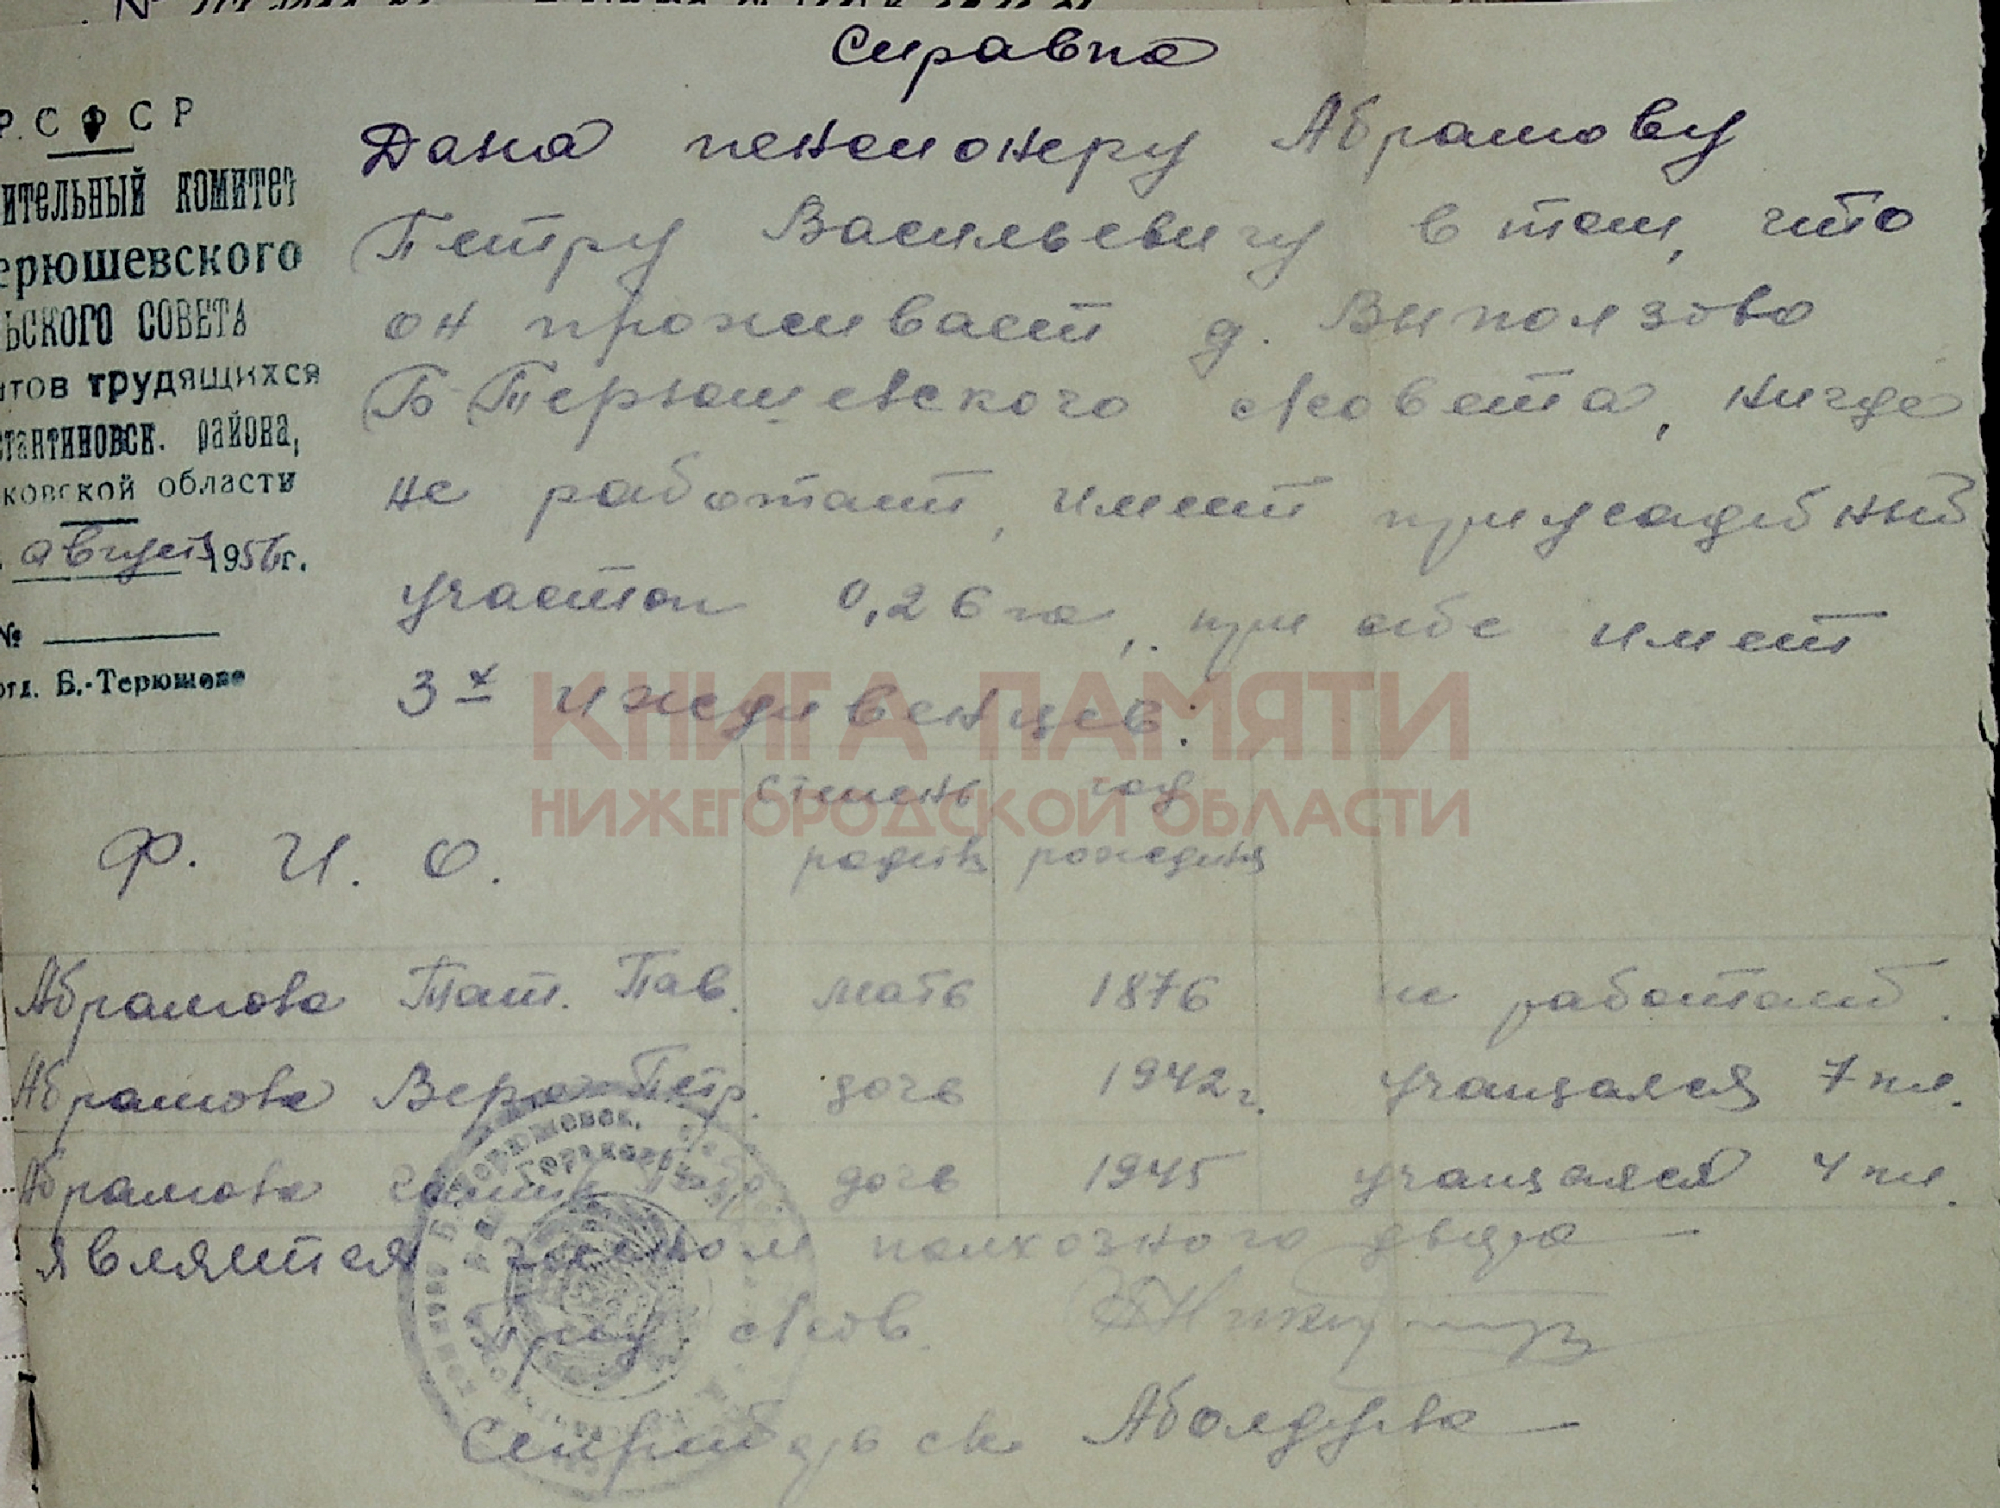 Справка
РСФСР
ительный комитет
ерюшевского
ьского совета
тов трудящихся
стантиновск. района,
ковской области
август 1956г.
№
отд. Б.-Терюшево
Дана пенсионеру Абрамову
Петру Васильевичу в том, что
он проживает д. Выползово
Б-Терюшевского с/совета, нигде
не работает, имеет приусадебный
участок 0,26 га, при себе имеет
3х иждивенцев:
КНИГА ПАМЯТИ
НИЖЕГОРОДСКОЙ ОБЛАСТИ
Ф. И. О. степень родств год рождения
Абрамова Тат. Пав. мать 1876 не работает.
Абрамова Вера Петр. дочь 1942г. учащаяся 7 кл.
Абрамова дочь 1945 учащаяся 4 кл.
является членом колхозного двора
Пред. с/сов.
Секретарь с/с Аболдуева